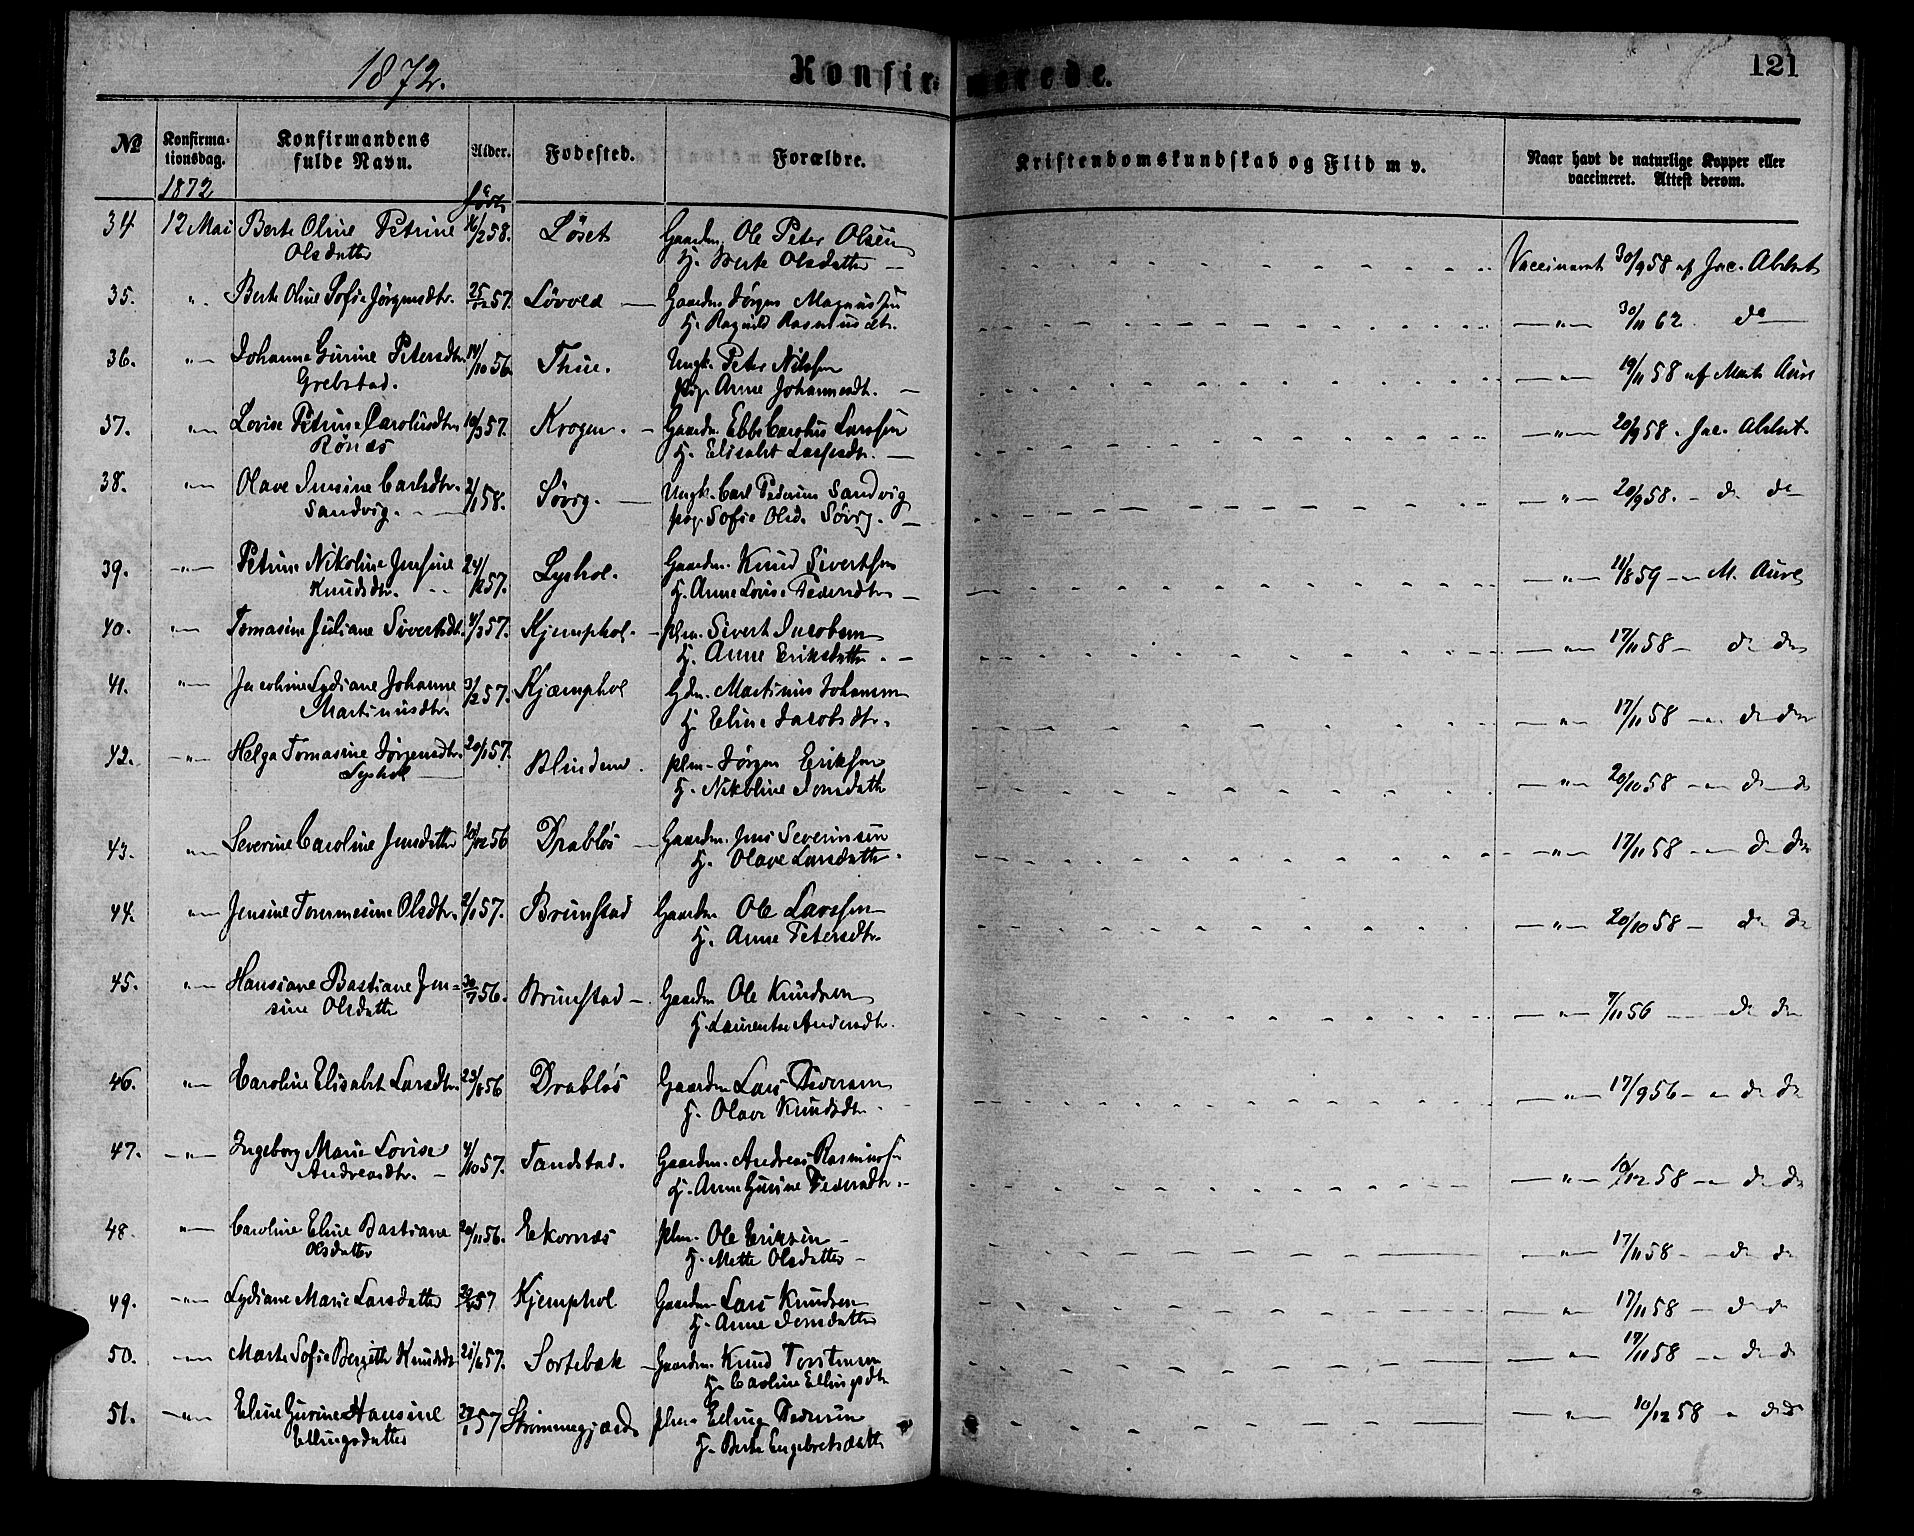 1872.
Konfirmerede.
121
No
Konfirmationsdag.
Konfirmandens fulde Navn.
Alder.
Fødested.
Forældre.
Kristendomskundskab og Flid m v.
Naar havt de naturlige Kopper eller vaccineret. Attest derom.
1872
født
34 12 Mai Berte Oline Petrine 16/2 58. Løset Gaardm. Ole Peter Olsen Vaccineret 30/9 58 af Jac. Abelset
Olsdatter Hj. Berte Olsdatter —
35. " Berte Oline Sofie Jørgensdtr. 25/12 57. Løvold — Gaardm. Jørgen Magnussen — " — 30/11 62. do
Hj. Ragnild Rasmusdtr.
36. " Johanne Gurine Petersdtr. 14/10 56. Thue. Ungk. Peter Nilssen — " — 19/11 58 af Mart. Aure
Grebstad. pig. Anne Johannesdtr. —
37. " Lovise Petrine Carolusdtr. 10/3 57. Krogen. — Gaardm. Ebbe Carolus Larssen — " — 20/9 58. Jac. Abelset.
Rønæs Hj. Elisabet Lassesdtr. —
38. " Olave Jensine Carlsdtr. 2/1 58. Søvig. — Ungk. Carl Pedersen Sandvig — " — 20/9 58. — do do
Sandvig. pig. Sofie Olsd. Søvig. —
39. " Petrine Nikoline Jensine 24/12 57. Lyshol. Gaardm. Knud Sivertsen — " — 11/8 59 — M. Aure
Knudsdtr. Hj. Anne Lovise Pedersdtr —
40. " Tomasine Juliane Sivertsdt. 4/3 57. Kjemphol. — plm. Sivert Jacobsen — " — 17/11 58 — do do
Hj. Anne Eriksdatter. —
41. " Jacobine Lydiane Johanne 3/2 57. Kjæmphol Gdm. Martinus Johansen — " — 17/11 58 — do do
Martinusdtr. Hj. Eline Jacobsdtr.
42. " Helga Tomasine Jørgensdtr. 20/1 57. Blindem. plm. Jørgen Eriksen — " — 20/10 58 — do do
Lyshol Hj. Nikoline Jonsdatter
43. " Severine Caroline Jensdatter 10/12 56 Drabløs — Gaardm. Jens Severinsen — " — 17/11 58 — do do
Hj. Olave Larsdatter.
44. " Jensine Tommesine Olsdtr. 2/1 57. Brunstad Gaardm Ole Larssen — " — 20/10 58 — do do
Hj. Anne Petersdtr.
45. " Hansiane Bastiane Jen- 30/7 56. Brunstad — Gaardm Ole Knudsen — " — 7/11 56 — do do
sine Olsdatter Hj. Laurentse Andersdtr.
46. " Caroline Elisabet Larsdtr. 23/1 56 Drabløs Gaardm Lars Iversen — " — 17/9 56 — do do
Hj. Olave Knudsdtr.
47. " Ingeborg Marie Lovise 4/10 57. Tandstad. Gaardm. Andreas Rasmuss. — " — 10/12 58 — do do
Andreasdtr. — Hj. Anne Gurine Pedersdtr.
48. " Caroline Eline Bastiane 20/11 56. Ekornæs plm. Ole Eriksen — — " — 17/11 58 — do do
Olsdatter Hj. Mette Olsdatter —
49. " Lydiane Marie Larsdatter 57 Kjemphol Gaardm Lars Knudsen — " — 17/11 58 — do do
Hj. Anne Jensdatter
50. " Marte Sofie Bergitte Knudsdt 57. Sortebæk — Gaardm. Knud Torstensen — " — 17/11 58 — do do
Hj. Caroline Ellingsdtr
51. " Eline Gurine Hansine 57 Strømmegjærd plm. Elling Pedersen — " — 10/12 58 — do do
Ellingsdatter Hj. Berte Engebretsdatter